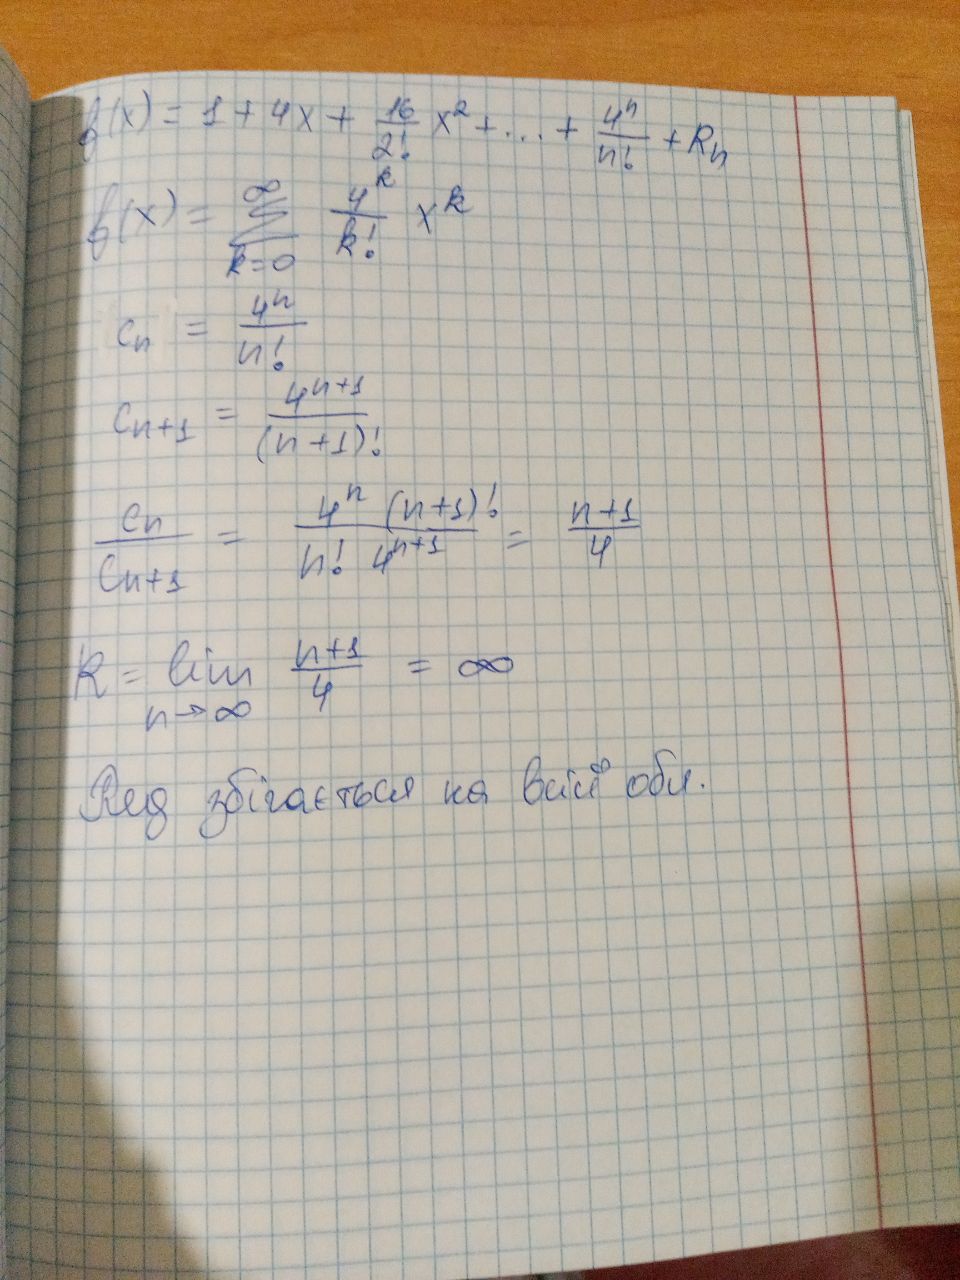 f(x) = 1 + 4x + 16/2! x² + ... + 4ⁿ/n! + Rn
f(x) = ∞ Σ k=0 4ᵏ/k! xᵏ
cn = 4ⁿ/n!
cn+1 = 4ⁿ⁺¹/(n+1)!
cn/cn+1 = 4ⁿ (n+1)!/n! 4ⁿ⁺¹ = n+1/4
R = lim n→∞ n+1/4 = ∞
Ряд збігається на всій обл.